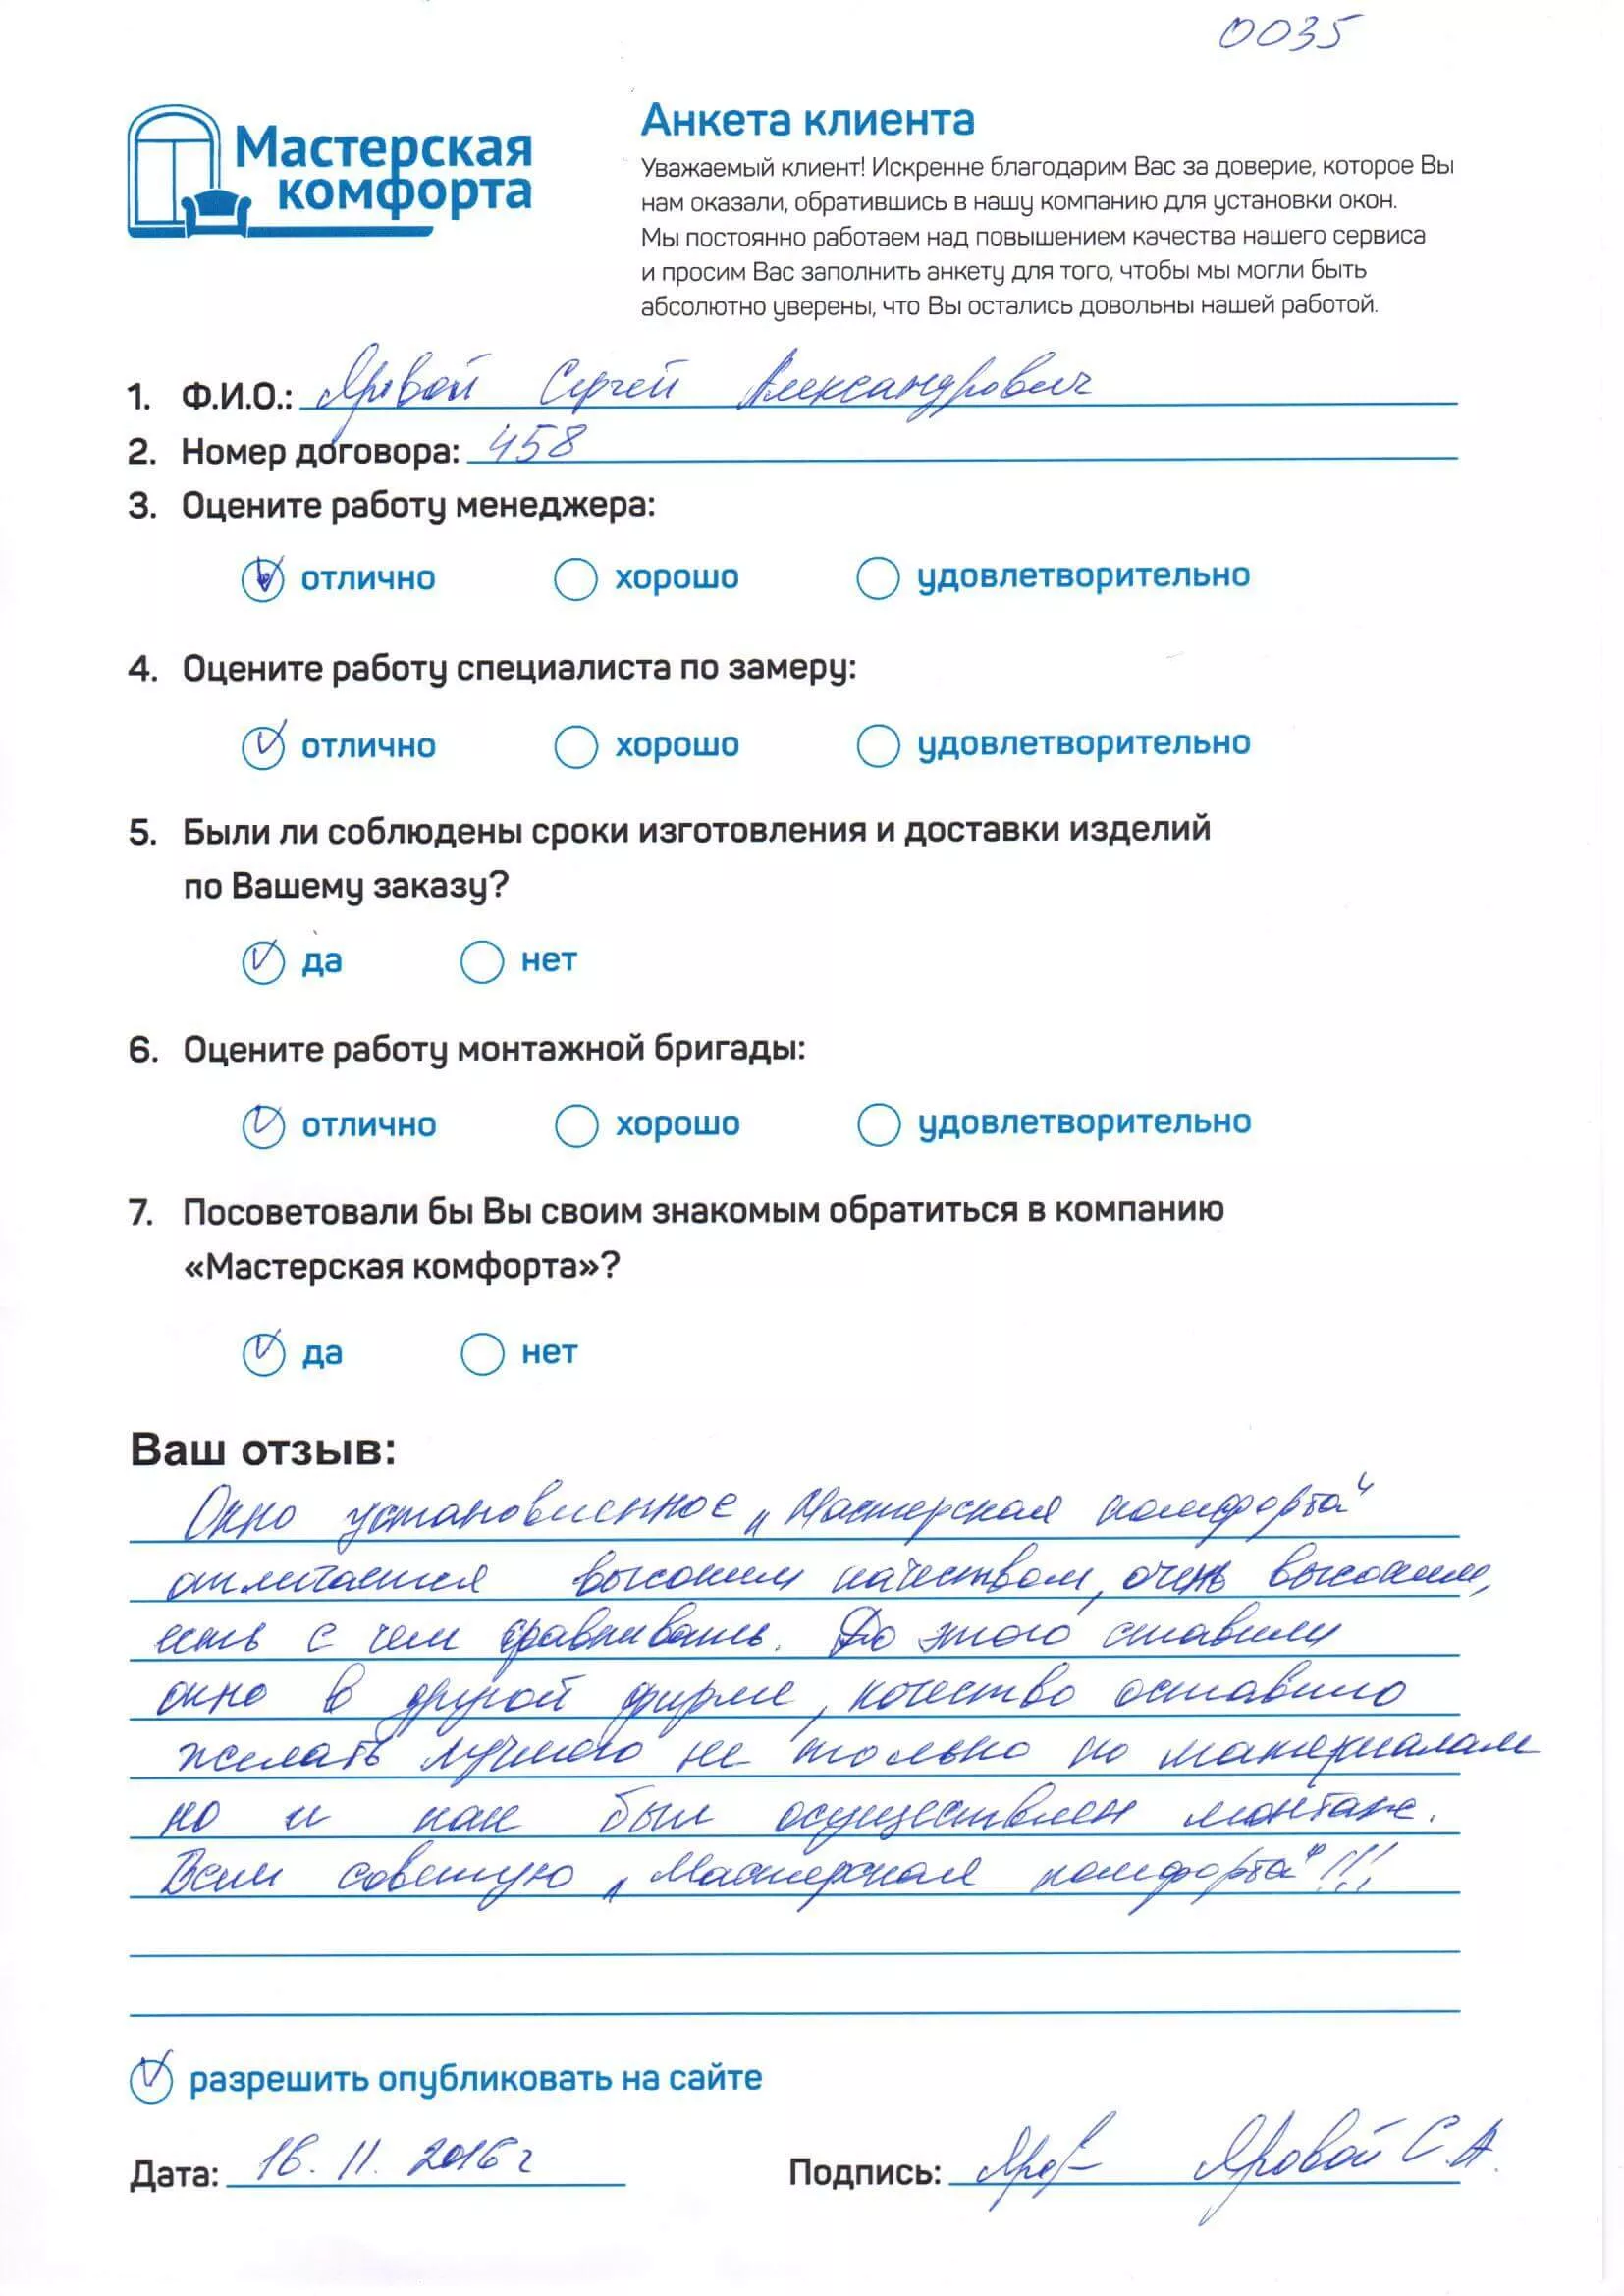 0035
Мастерская
комфорта
Анкета клиента
Уважаемый клиент! Искренне благодарим Вас за доверие, которое Вы
нам оказали, обратившись в нашу компанию для установки окон.
Мы постоянно работаем над повышением качества нашего сервиса
и просим Вас заполнить анкету для того, чтобы мы могли быть
абсолютно уверены, что Вы остались довольны нашей работой.
1. Ф.И.О.: Яровой Сергей Александрович
2. Номер договора: 458
3. Оцените работу менеджера:
отлично хорошо удовлетворительно
4. Оцените работу специалиста по замеру:
отлично хорошо удовлетворительно
5. Были ли соблюдены сроки изготовления и доставки изделий
по Вашему заказу?
да нет
6. Оцените работу монтажной бригады:
отлично хорошо удовлетворительно
7. Посоветовали бы Вы своим знакомым обратиться в компанию
«Мастерская комфорта»?
да нет
Ваш отзыв:
Окно установленное „Мастерская комфорта“
отличается высоким качеством, очень высоким,
есть с чем сравнивать. До этого ставили
окно в другой фирме, качество оставило
желать лучшего не только по материалам
но и как был осуществлен монтаж.
Всем советую „Мастерская комфорта“!!!
разрешить опубликовать на сайте
Дата: 16.11.2016г Подпись: Яров Яровой С.А.